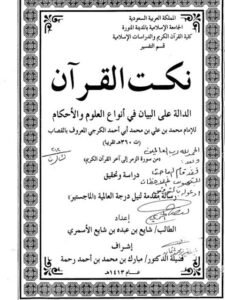 المملكة العربية السعودية
الجامعة الإسلامية بالمدينة المنورة
كلية القرآن الكريم والدراسات الإسلامية
قسم التفسير
نكت القرآن
الدالة على البيان في أنواع العلوم والأحكام
للإمام محمد بن علي بن محمد بن أبي أحمد الكرجي المعروف بالقصاب
(ت ٣٦٠هـ تقريبا)
"من سورة الزمر إلى آخر القرآن الكريم"
الحمد لله رب العالمين
دراسة وتحقيق
رسالة مقدمة لنيل درجة العالمية «الماجستير»
إعداد
الطالب/ شايع بن عبده بن شايع الأسمري
إشراف
فضيلة الدكتور/ مبارك بن محمد بن أحمد رحمة
عام ١٤١٣هـ